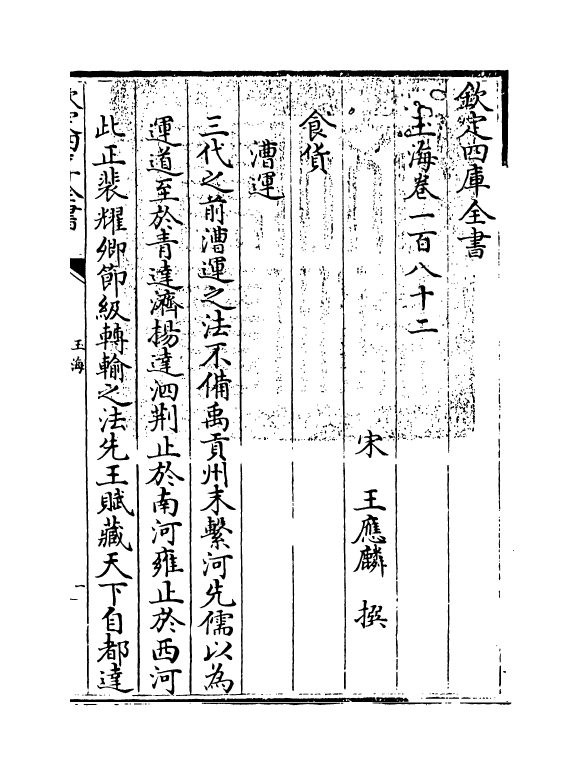 欽定四庫全書
玉海卷一百八十二
宋 王應麟 撰
食貨
漕運
三代之前漕運之法不備禹貢州末繫河先儒以為
運道至於青達濟揚達泗荆止於南河雍止於西河
此正裴耀卿節級轉輸之法先王賦藏天下自都達
欽定四庫全書
玉海
一